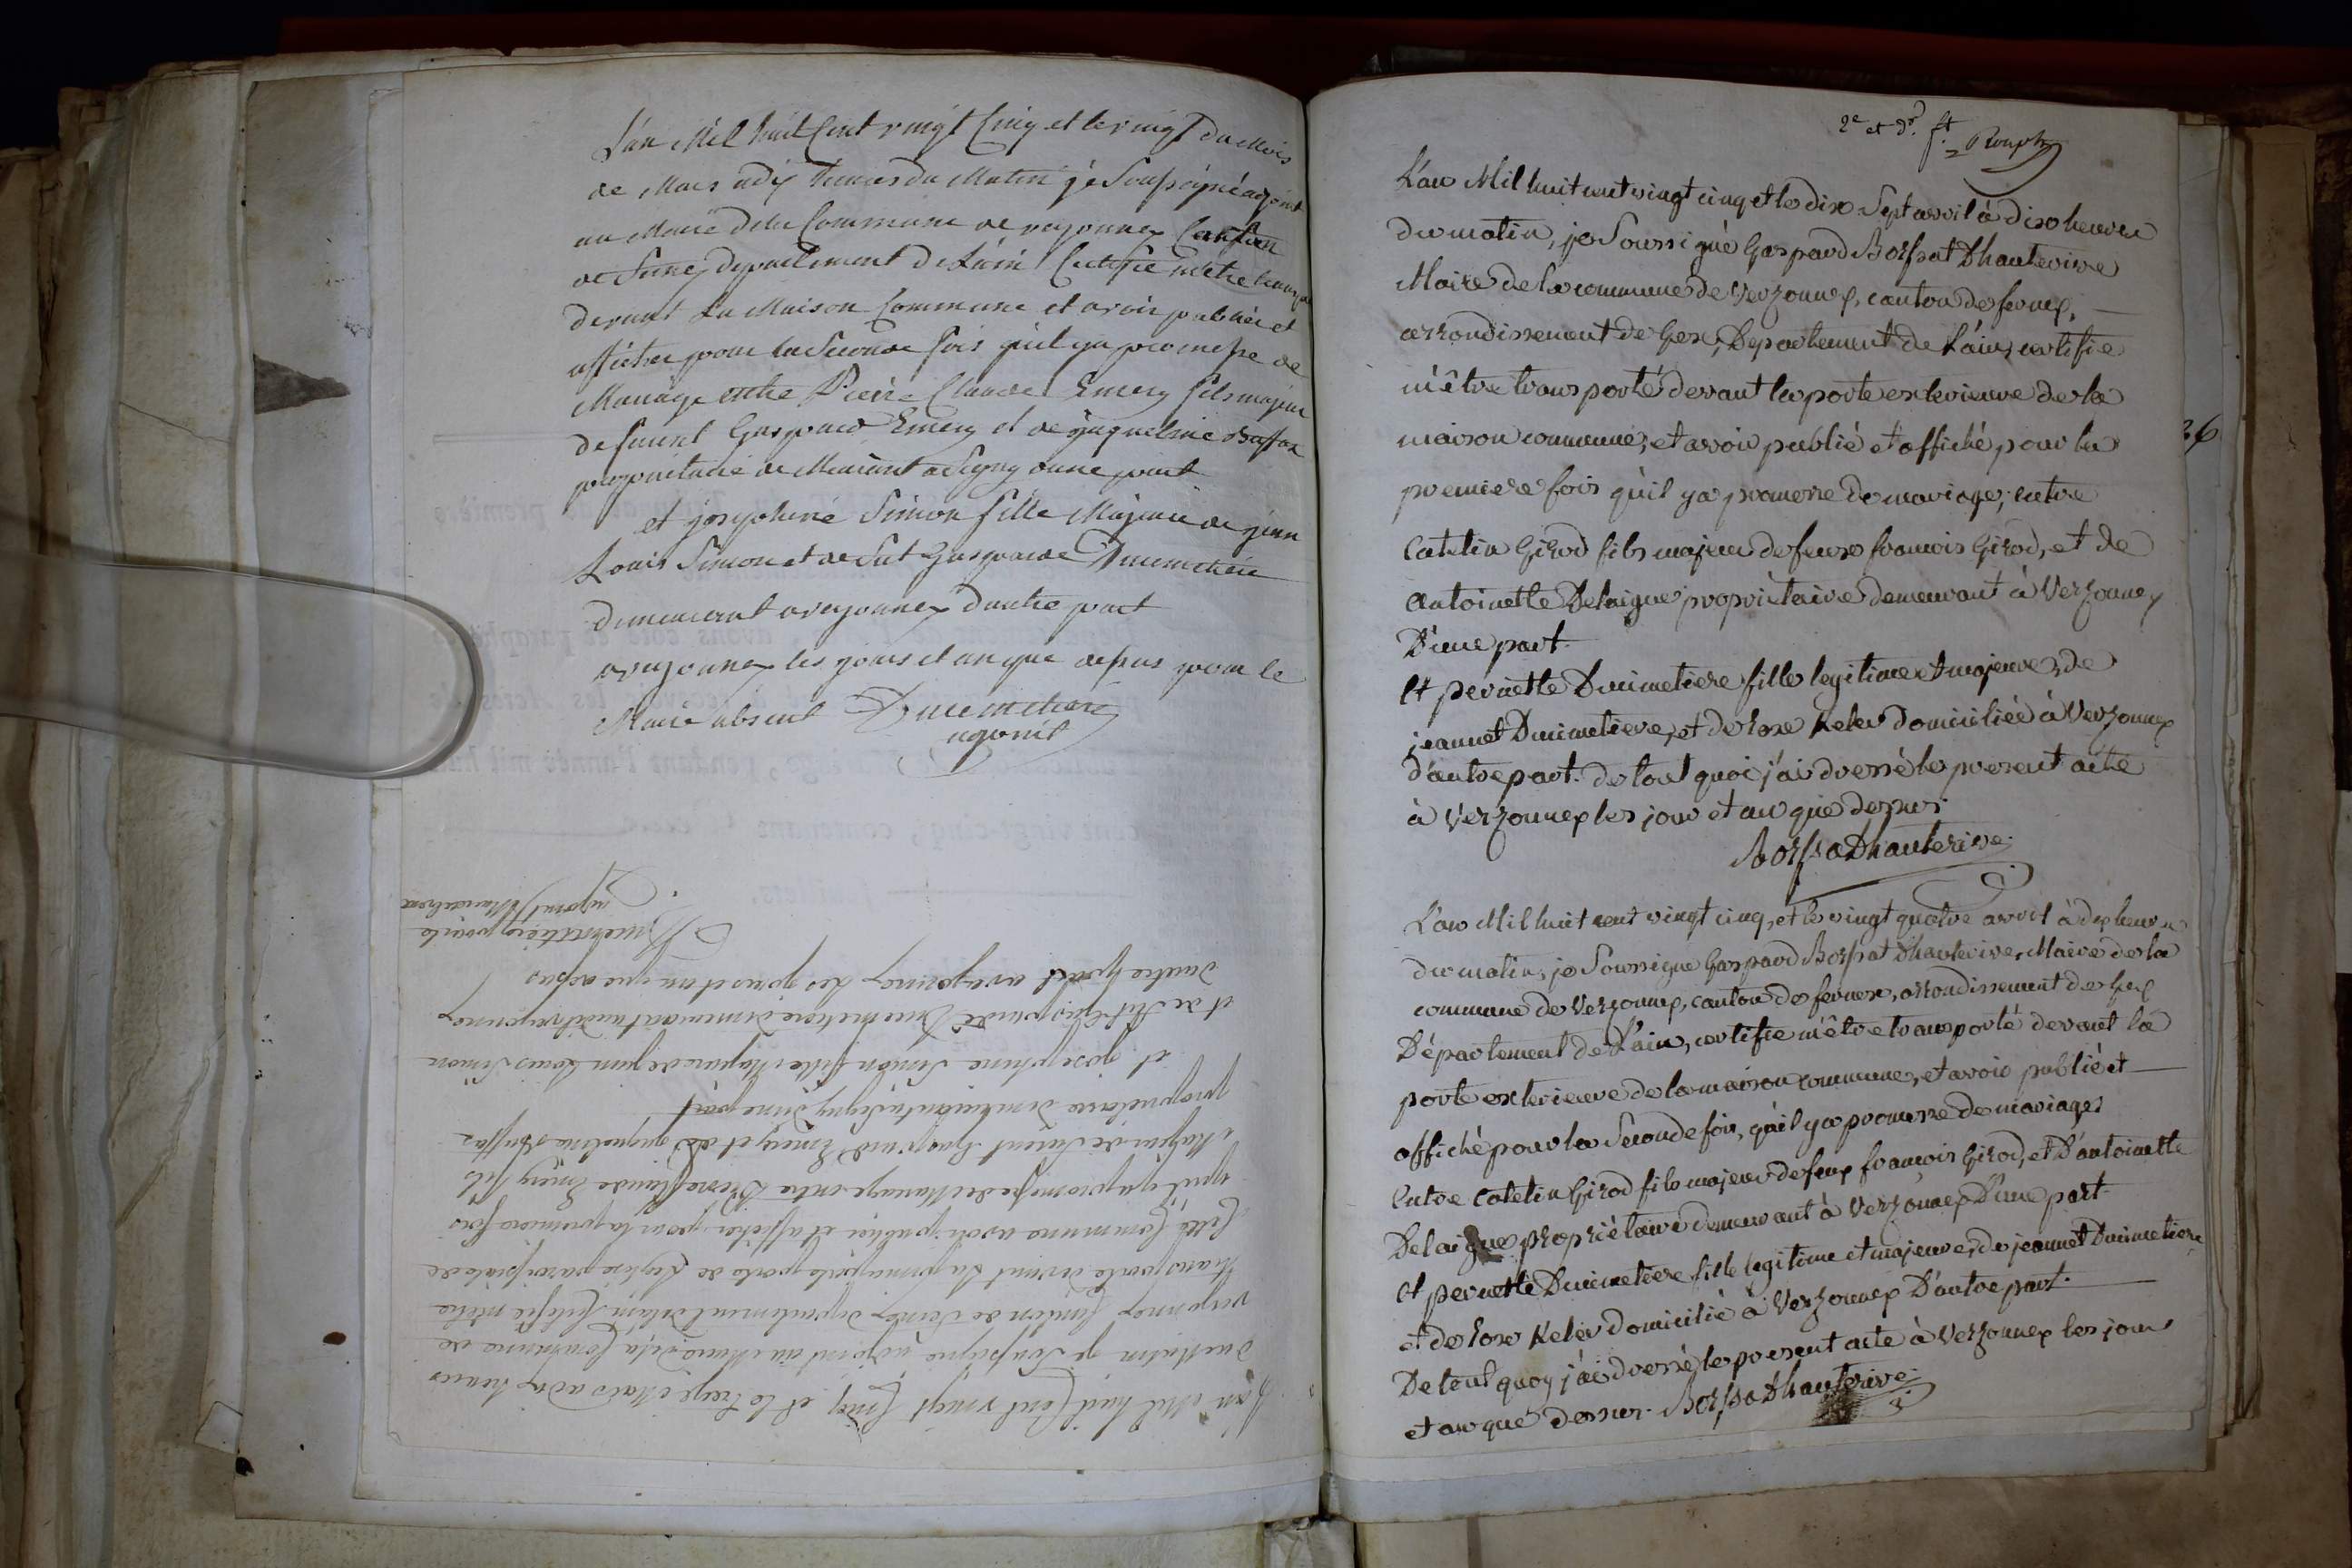 L'an Mil huit Cent vingt Cinq et le vingt du Mois
de Mars adix heures du Matin je Soussigné adjoint
au Maire dela Commune de versonnex Canton
de ferney departement de L'ain Certifie m'etre transporté
devant La Maison Commune et avoir publiée et
affichee pour la Seconde fois quil ya promesse de
Mariage entre Pierre Claude Emery fils majeur
defeunt Gaspard Emery et de jaqueline
propriétaire de Meurant a Signy dune part
et josephine Simon fille Majeure de jean
Louis Simon et de fut Gasparde Ducimetiere
demeurant aversonnex dautre part
aversonnex les jours et an que desus pour le
Maire absent Ducimetiere
adjoint
L'an Mil huit Cent vingt Cinq et le treize Mars adix heures
du Matin je Soussigne adjoint au Maire dela Commune de
versonnex Canton de ferney departement delain Certifie métre
transporté devant la principale porte de Leglise paroissiale de
Cette Commune avoir publiee et affichee pour la premiere fois
quil ya promesse de Mariage entre Pierre Claude Emery fils
Majeur de feunt Gaspard Emery et de jaqueline
propriétaire demeurant a Signy dune part
et josephine Simon fille Majeure de jean Louis Simon
et de fut Gasparde Ducimetiere demeurant audit versonnex
dautre part aversonnex les jours et an que desus
Ducimetiere pour le
adjoint Maire absent
2e et dr. ft
L'an Mil huit cent vingt cinq et le dix Sept avril à dix heures
du matin, je Soussigné Gaspard Borssat Dhauterive
Maire de la commune de Verzonnex, canton de ferney,
arrondissement de Gex, Département de L'ain, certifie
m'être transporté devant la porte exterieure de la
maison commune, et avoir publié et affiché pour la
premiere fois qu'il ya promesse de mariage, entre
Catelin Girod fils majeur de feux francois Girod, et de
antoinette Delaigue proprietaire demeurant à Verzonnex
D'une part.
et pernette Ducimetiere fille legitime et majeure, de
jeannet Ducimetiere, et de Rose Keler domiciliée à Verzonnex
d'autre part. de tout quoi j'ai dressé le present acte
à Verzonnex les jour et an que dessus.
Borssat Dhauterive.
36
L'an Mil huit cent vingt cinq, et le vingt quatre avril à dix heures
du matin, je Soussigne Gaspard Borssat Dhauterive, Maire de la
commune de Verzonnex, canton de fernex, arrondissement de Gex
Département de L'ain, certifie m'être transporté devant la
porte exterieure de la maison commune, et avoir publié et
affiché pour la Seconde fois, qu'il ya promesse de mariage
entre Catelin Girod fils majeur de feux francois Girod, et D'antoinette
Delaigue propriétaire demeurant à Verzonnex D'une part
et pernette Ducimetiere fille legitime et majeure, de jeannet Ducimetiere
et de Rose Keler domicilié à Verzonnex D'autre part.
De tout quoy j'ai dressé le present acte à Verzonnex les jour
et an que dessus. Borssat Dhauterive